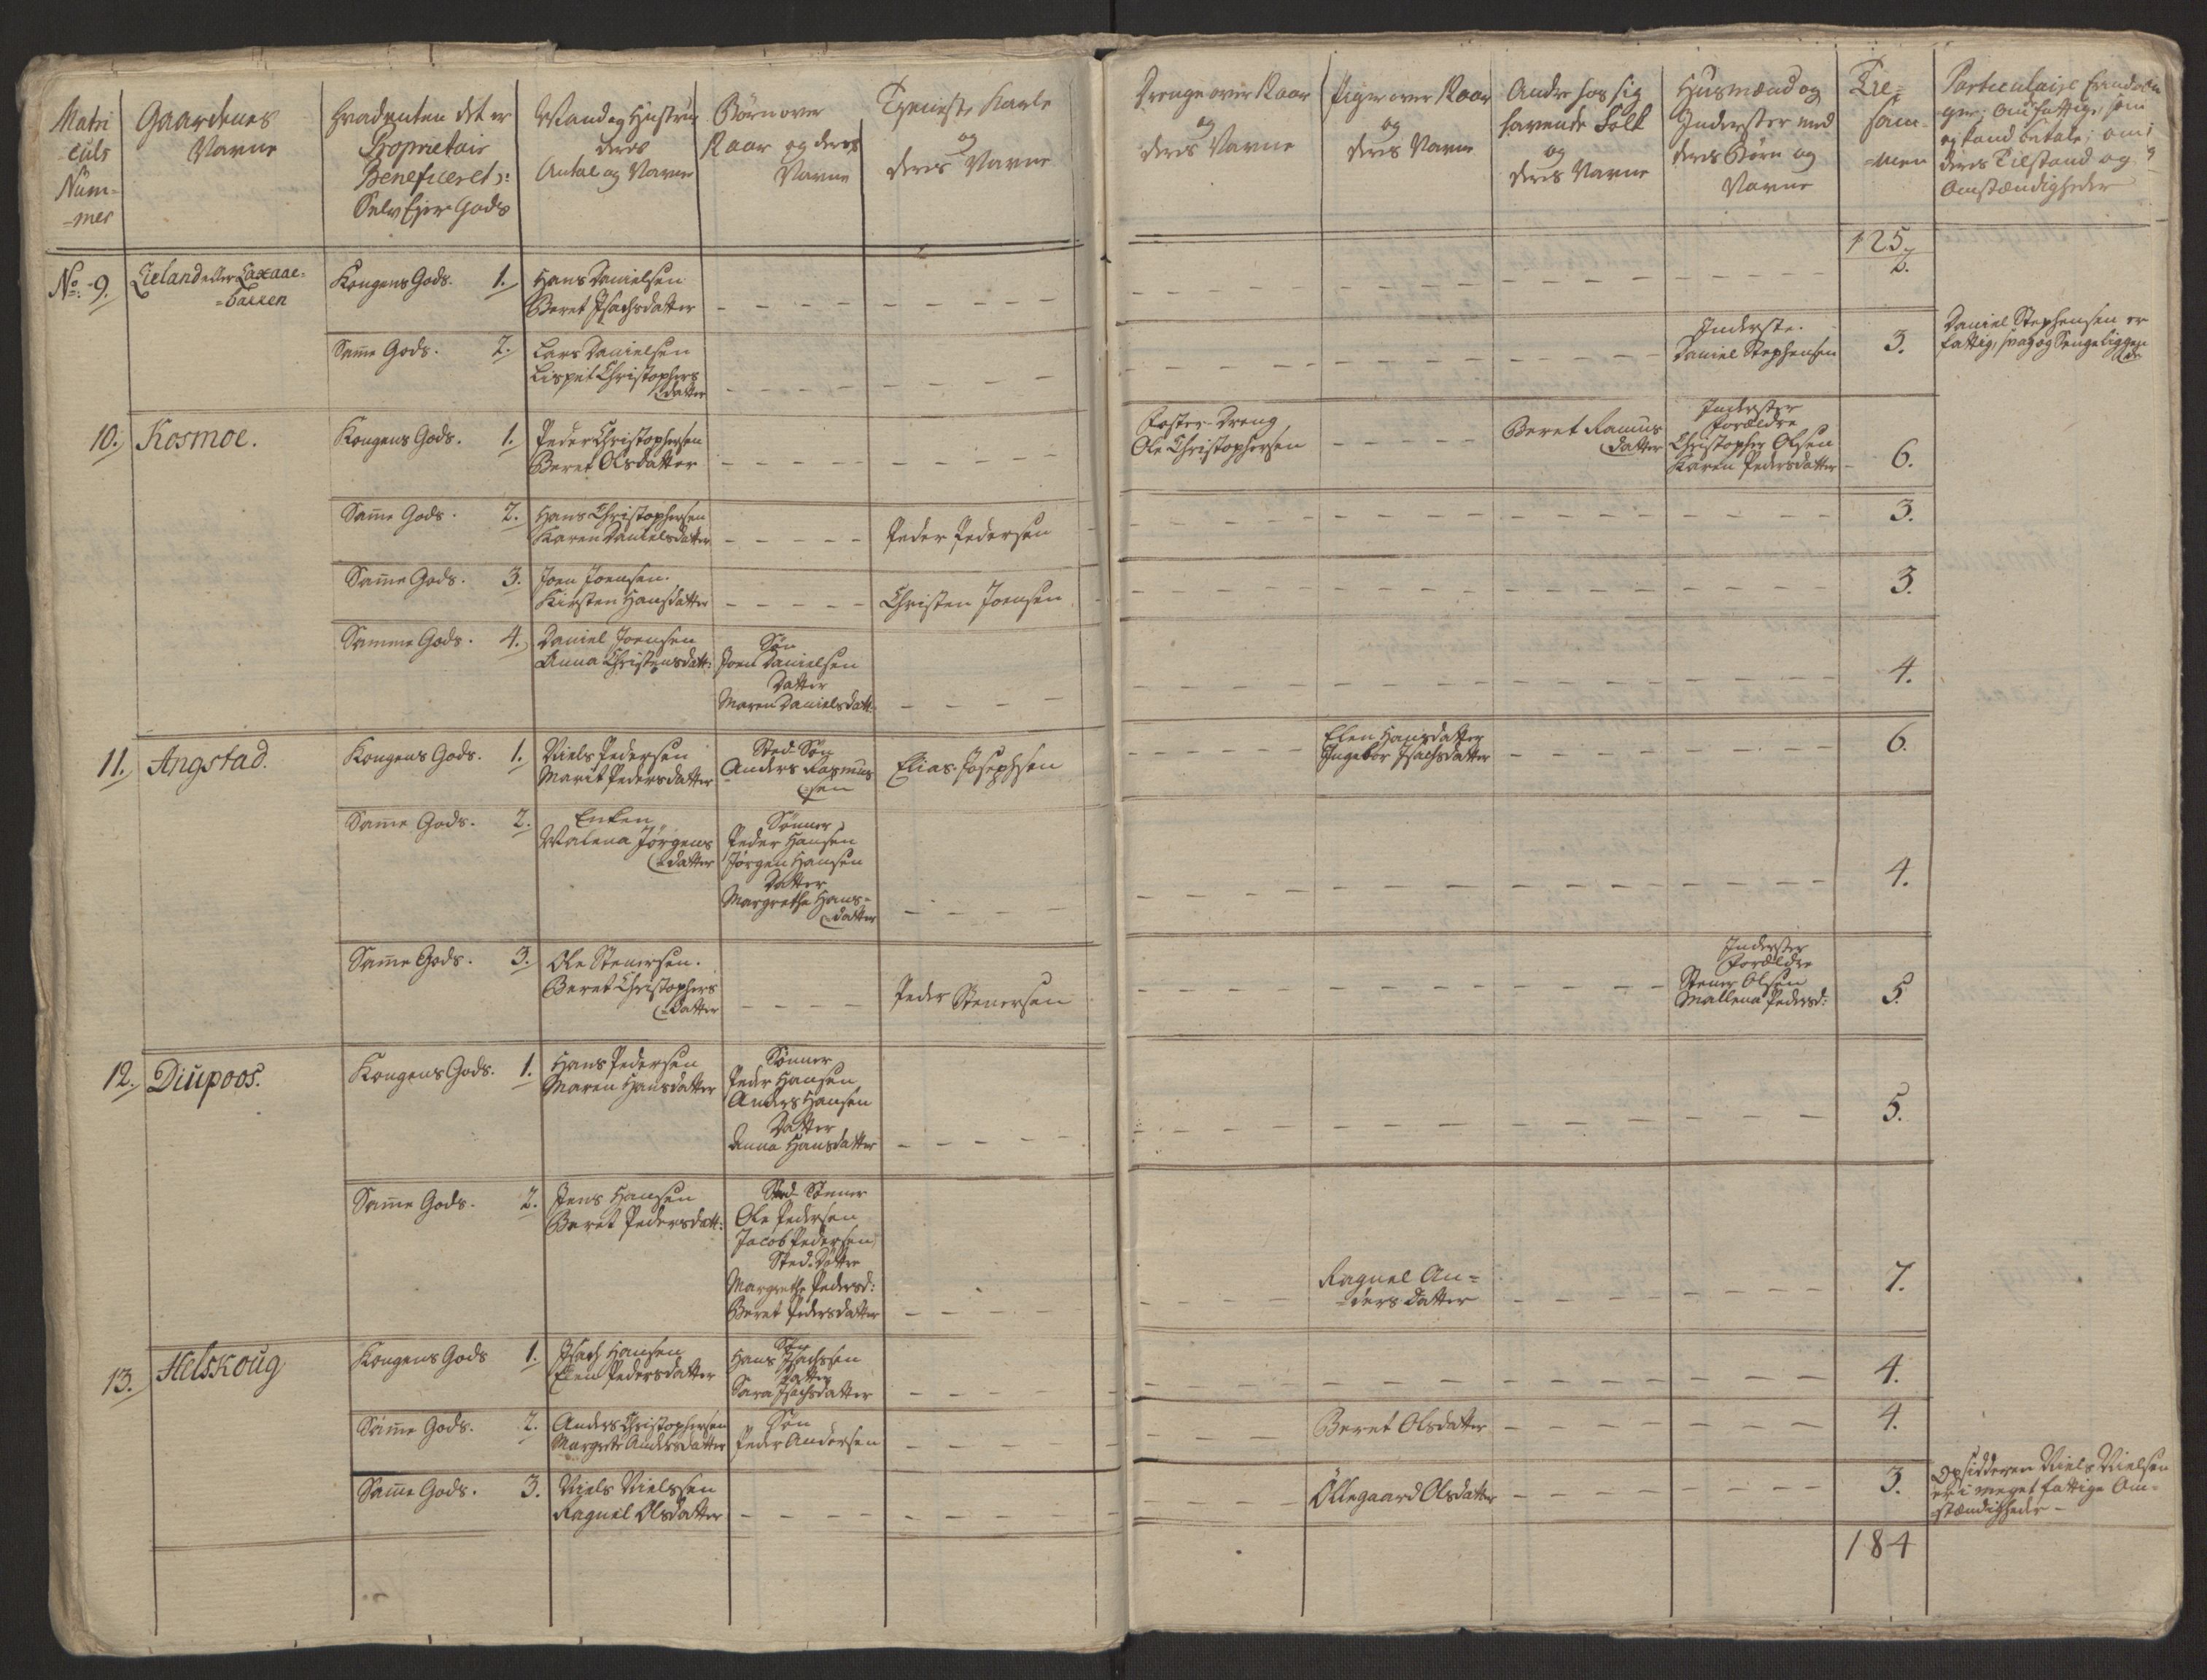 Matri
culs
Num-
-mer
Gaardenes
Navne
Hvadenten det er
Proprietair
Beneficeret ɔ:
Selv Ejer Gods
Mand og Hustru
deres
Antal og Navne
Børn over
Aar og deres
Navne
Tjeneste Karle
og
deres Navne
Drenge over Aar
og
deres Navne
Piger over Aar
og
deres Navne
Andre hos sig
havende Folk
og
deres Navne
Husmænd og
Inderster med
deres Børn og
Navne
Til=
sam-
-men
deres Tilstand og
Omstændigheder
125.
No. 9.
Eiland eller Laxaae-
=backen
Kongens Gods. 1.
Hans Danielsen
Beret Isachsdatter
2.
Samme Gods. 2.
Lars Danielsen
Lispet Christophers
datter
Inderste.
Daniel Stephensen
3.
Daniel Stephensen er
fattig, svag og Sengeliggen
de
10.
Kosmoe.
Kongens Gods. 1.
Peder Christophersen
Beret Olsdatter
Foster-Dreng
Ole Christophersen
Beret Ramus
datter
Inderster
Forældre
Christopher Olsen
Karen Pedersdatter
6.
Samme Gods. 2.
Hans Christophersen
Karen Danielsdatter
Peder Pedersen
3.
Samme Gods. 3.
Joen Joensen.
Kirsten Hansdatter
Christen Joensen
3.
Samme Gods. 4.
Daniel Joensen
Anna Christensdatt:
Søn
Joen Danielsen
Datter
Maren Danielsdatt:
4.
11.
Angstad.
Kongens Gods. 1.
Niels Pedersen
Marit Pedersdatter
Sted-Søn
Anders Rasmus
sen
Elias Josephsen
Elen Hansdatter
Ingebor Isachsdatter
6.
Samme Gods. 2.
Enken
Malena Jørgens
datter
Sønner
Peder Hansen
Jørgen Hansen
Datter
Margrethe Hans-
datter
4.
Samme Gods. 3.
Ole Stenersen.
Beret Christophers
datter
Peder Stenersen
Inderster
Forældre
Stener Olsen
Mallena Pedersd:
5.
12.
Diupoos.
Kongens Gods. 1.
Hans Pedersen
Maren Hansdatter
Sønner
Peder Hansen
Anders Hansen
Datter
Anna Hansdatter
5.
Samme Gods. 2.
Jens Hansen
Beret Pedersdatt:
Sted-Sønner
Ole Pedersen
Jacob Pedersen
Sted-Døttre
Margrethe Pedersd:
Beret Pedersdatter
Raguel An=
=dersdatter
7.
13.
Helskoug
Kongens Gods 1.
Isach Hansen
Elen Pedersdatter
Søn
Hans Isachsen
Datter
Sara Isachsdatter
4.
Samme Gods. 2.
Anders Christophersen
Margrete Andersdatter
Søn
Peder Andersen
Beret Olsdatter
4.
Samme Gods. 3.
Niels Nielssen
Raguel Olsdatter
Ollegaard Olsdatter
3.
Opsidderen Niels Nielsen
er i meget fattige Om-
=stændigheder -
184